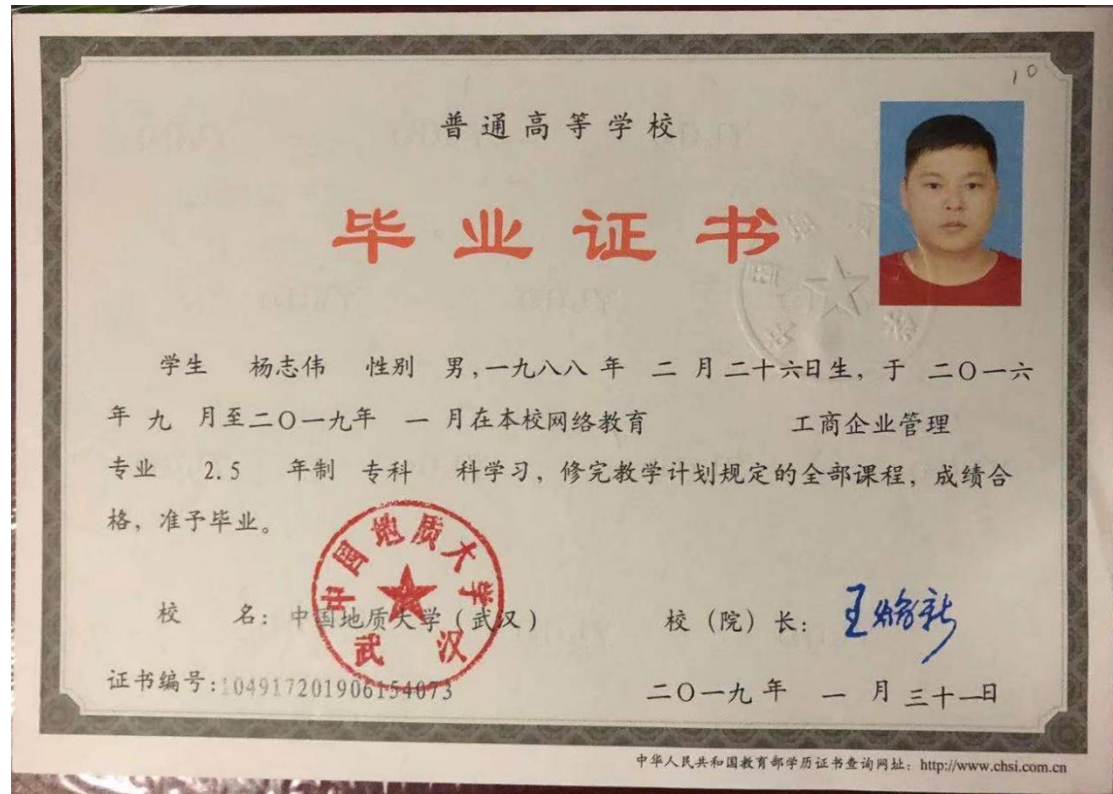 10
普通高等学校
毕业证书
学生 杨志伟 性别 男,一九八八 年 二 月二十六日生，于 二〇一六
年 九 月至二〇一九年 一 月在本校网络教育 工商企业管理
专业 2.5 年制 专科 科学习，修完教学计划规定的全部课程，成绩合
格，准予毕业。
中国地质大学
武汉
校 名：中国地质大学（武汉） 校（院）长：
证书编号:104917201906154073 二〇一九 年 一 月 三十一日
中华人民共和国教育部学历证书查询网址：http://www.chsi.com.cn